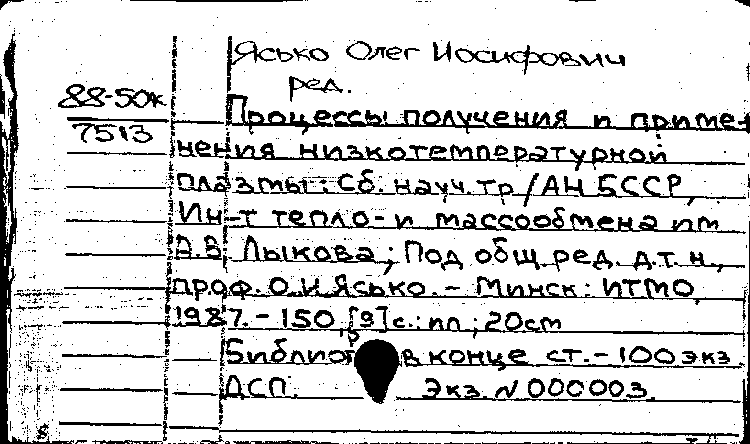 Ясько Олег Иосифович
ред.
88-50к
7513
Процессы получения и приме-
нения низкотемпературной
плазмы: Сб. науч. тр/АН БССР,
Ин-т тепло- и массообмена им
А.В. Лыкова; Под общ. ред. д.т.н.,
проф. О.И. Ясько. - Минск: ИТМО,
1987. - 150, [9] с.: ил; 20см
в конце ст. - 100 экз.
ДСП. Экз. N 000003.